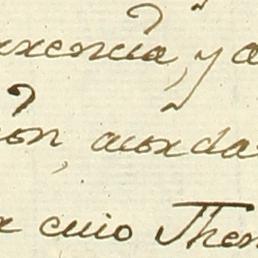 urrencia, y a
ion, acorda
cuio Then